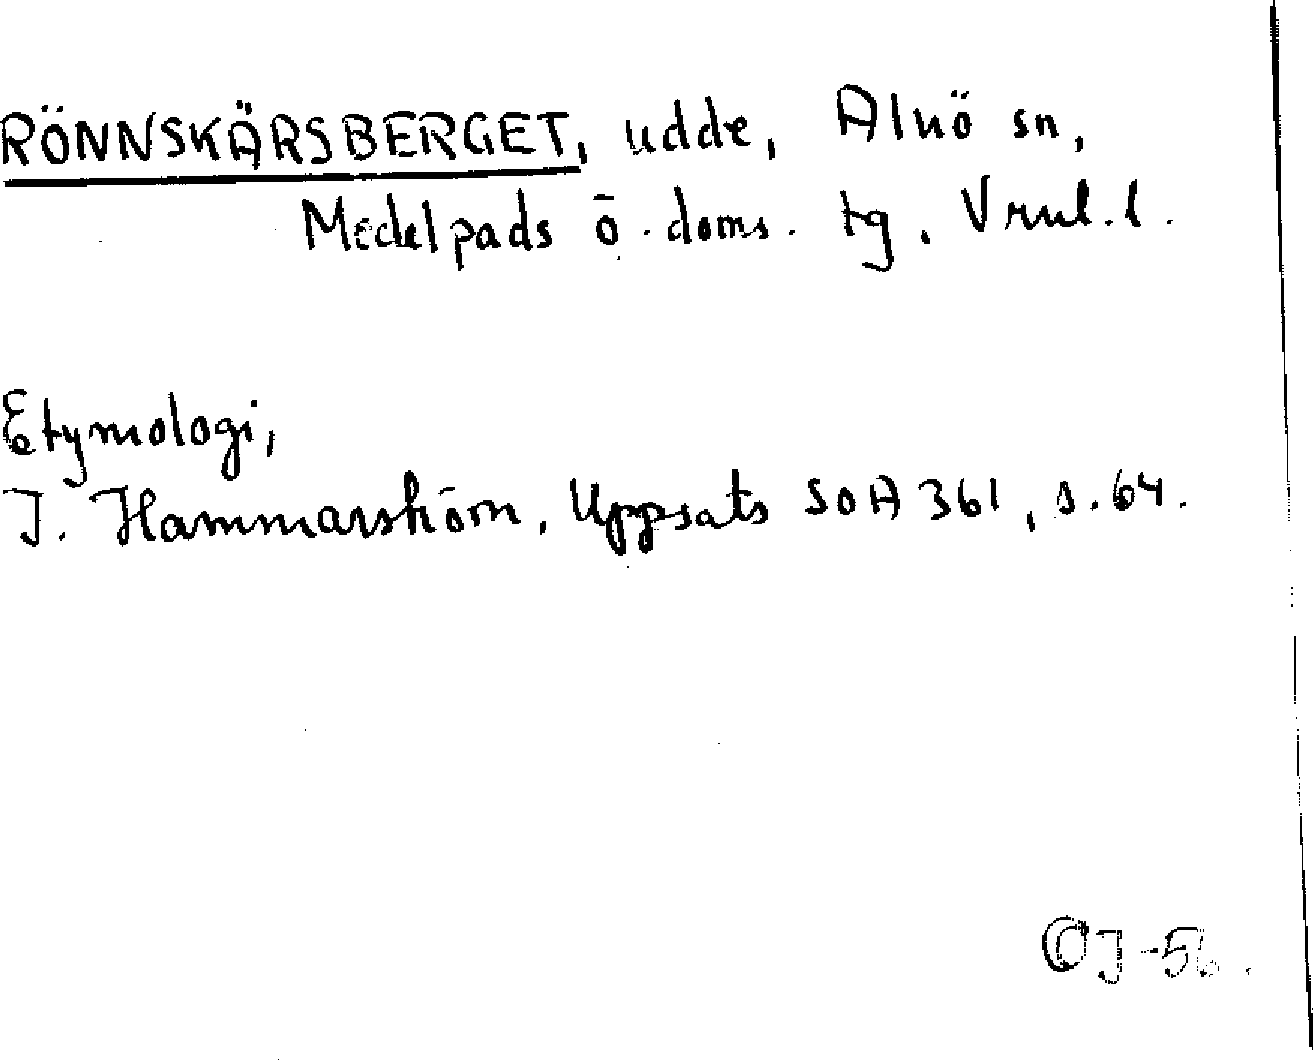 RÖNNSKÄRSBERGET, udde, Alnö sn,
Medelpads ö. doms. tg, Vrnl. l.
Etymologi,
J. Hammarström, Uppsats SOA 361, s. 64.
OJ-56.